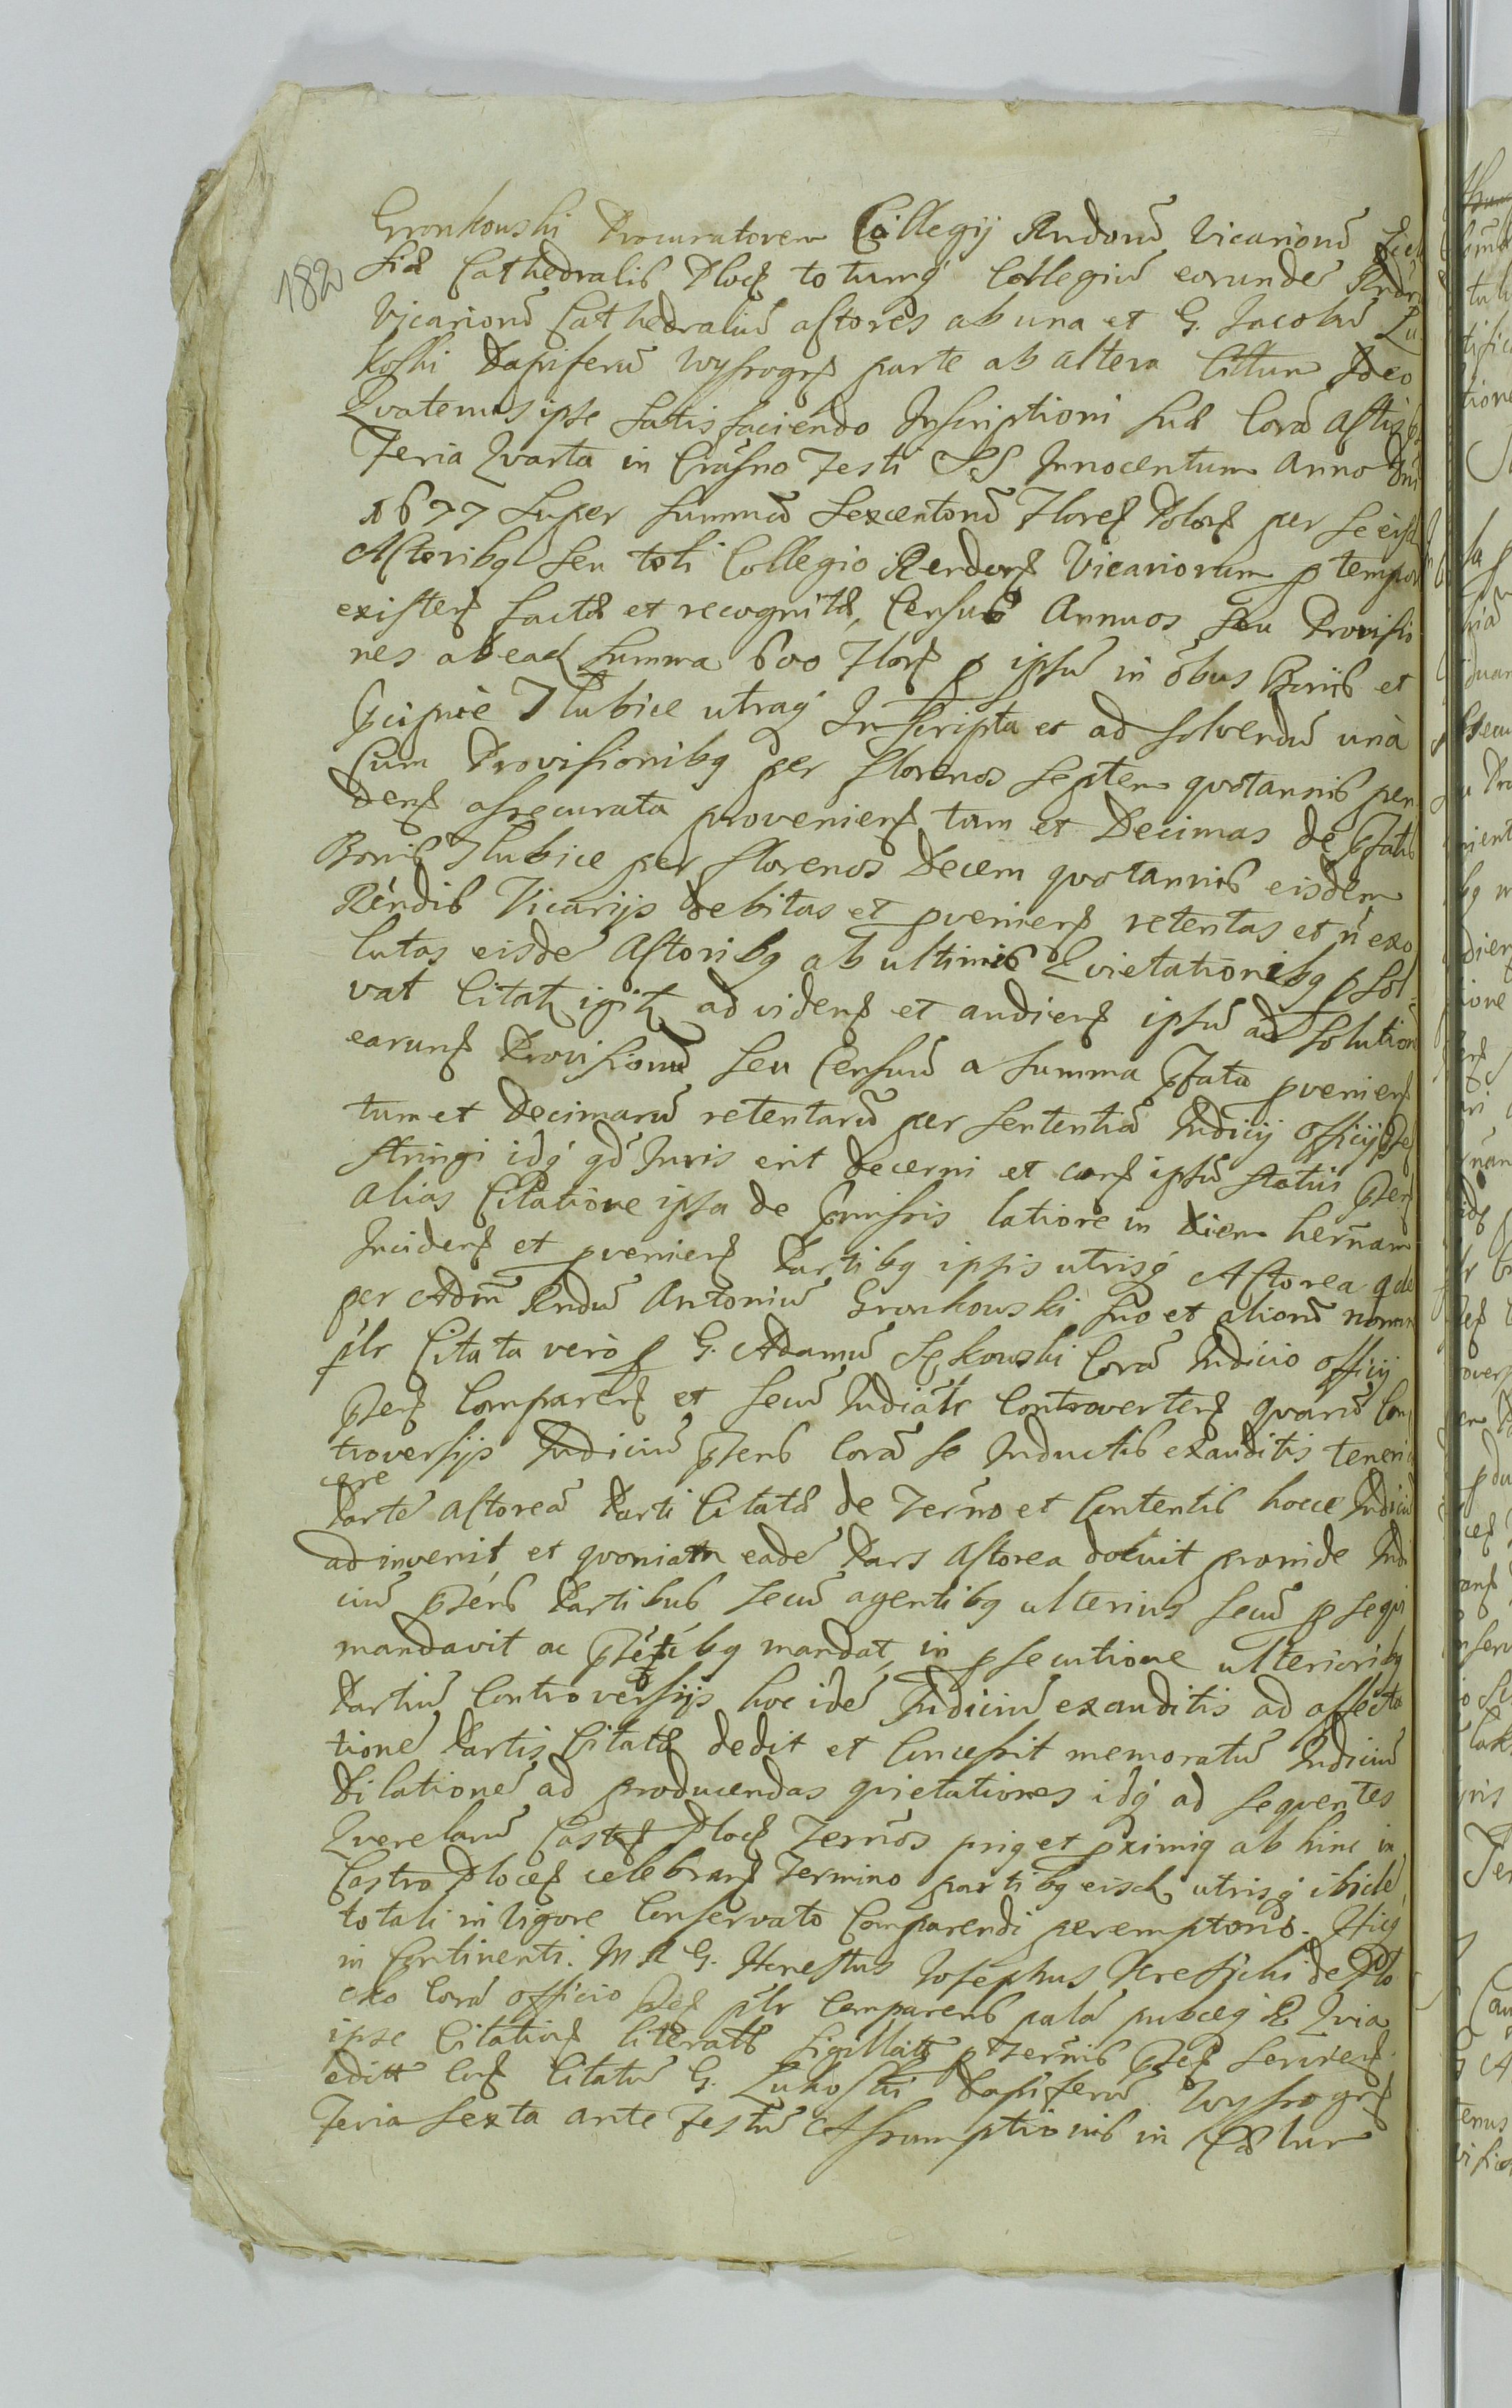 182
Gronkowski Procuratorem Collegij Rndorū Vicariorū Eccl
siæ Cathedralis Ploc totumq́ Collegiū eorundē Rndor
Vicariorū Cathedraliū actores ab una et G. Jacobū Lu
koski Dapiferū Wyssogr parte ab altera Cittum Ideo
Qvatenus ipse Satisfaciendo Inscriptioni suæ Corā Actis
Feria Qvarta in Crastno Festi SS Innocentum Anno Dni
1677 super summā Sexcentorū Floren Polon per se eisd
Actoribq seu toti Collegio Rendor Vicariorum p tempor
existen factæ et recognitæ, Census Annuos seu Provisio
nes ab ead summa 600 Flor p ipsū in oībus Bonis et
pcipuè Slubice utraq́ Inscripta et ad solvendū unà
Cum Provisionibq per florenos septem qvotannis pen
den assecurata provenien tum et Decimas de pfatis
Bonis Slubice per florenos Decem qvotannis eisdem
Réndis Vicarijs debitas et pvenien retentas et ń exo
lutas eisdē Actoribq ab ultimis Qvietationibq p sol
vat Citat igit ad viden et audien ipsū ad Solution
earun Provisionū seu Censuū a Summa pfata pvenien
tum et Decimarū retentarū per Sententiā Judicij officij pse
stringi idq́ qd Juris erit Decerni et cer ipsū statui psen
Alias Citatione ipsa de pmissis latiore in diem hernam
Inciden et pvenien Partibq ipsis utrisq́ Actorea qde
per Adm Rndū Antoniū Gronkowski suo et aliorū nomin
plr Citata verò p G. Adamū Sękowski Corā Judicio officij
psen Comparen et secū Judiālr Controverten qvarū Con
troversijs Judiciū psens Corā se Inductis exauditis teneri
cre
Partē Actoreā Parti Citatæ de Ternīo et Contentis hocce Judiciū
adinvenit, et qvoniam eadē Pars Actorea docuit proinde Judi
ciū psens Partibus secū agentibq ulterius secū p seqvi
mandavit ac psētibq mandat, in p secutione ulterioribq
Partiū Controversijs hoc idē Judiciū exauditis ad affecta
tionē Partis Citatæ dedit et Concessit memoratū Judiciū
Dilationē ad producendas qvietationes idq́ ad seqventes
Qverelarū Castr Ploc Ternīos priq et pximiq ab hinc in
Castro Plocen celebran Termino partibq eisd utrisq́ ibidē
totali in vigore Conservato Comparendi peremptoriè. Hicq
in Continenti. M R G. Honestus Josephus Kresicki de Plo
cko Corā officio psen plr Comparens palā publceq R Qvia
ipse Citation literatæ sigillatæ p Ternīis psen servien
editæ Con Citatū G. Lukoski Dapiferū Wyssogr
Feria Sexta ante Festū Assumptionis in Cælum